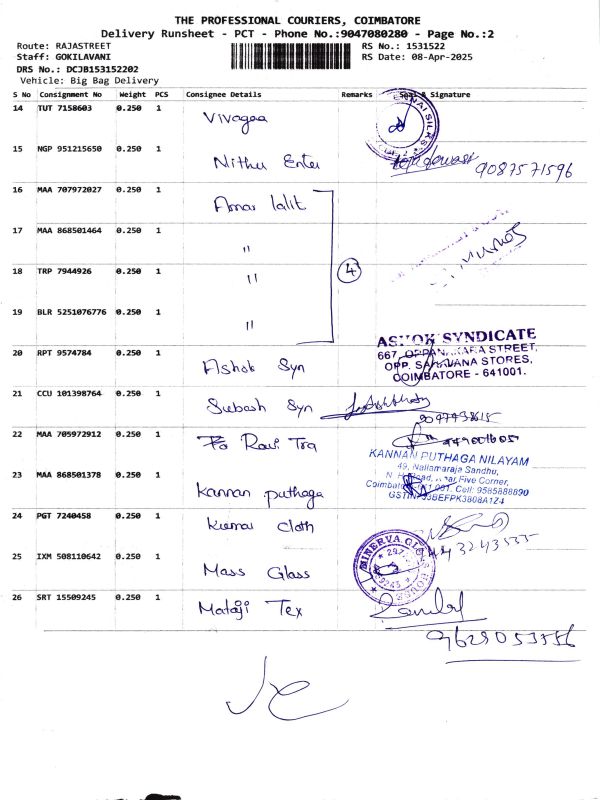 THE PROFESSIONAL COURIERS, COIMBATORE
Delivery Runsheet - PCT - Phone No.:9047080280 - Page No.:2
Route: RAJASTREET
RS No.: 1531522
Staff: GOKILAVANI
RS Date: 08-Apr-2025
DRS No.: DCJB153152202
Vehicle: Big Bag Delivery
S No Consignment No Weight PCS Consignee Details Remarks Seal & Signature
14 TUT 7158603 0.250 1 Vivagaa
15 NGP 951215650 0.250 1 Nithu Enter 9087571596
16 MAA 707972027 0.250 1 Amar lalit
17 MAA 868501464 0.250 1 "
18 TRP 7944926 0.250 1 " 4
19 BLR 5251076776 0.250 1 "
ASHOK SYNDICATE
667, OPPANAKARA STREET,
OPP. SARAVANA STORES,
COIMBATORE - 641001.
20 RPT 9574784 0.250 1 Ashok Syn
21 CCU 101398764 0.250 1 Subash Syn
22 MAA 705972912 0.250 1 Ravi Tra
KANNAN PUTHAGA NILAYAM
49, Nallamaraja Sandhu,
Five Corner,
Cell: 9585888890
23 MAA 868501378 0.250 1 Kannan puthaga
24 PGT 7240458 0.250 1 Kumar cloth
25 IXM 508110642 0.250 1 Mass Glass
MINERVA
26 SRT 15509245 0.250 1 Mataji Tex
9629053556